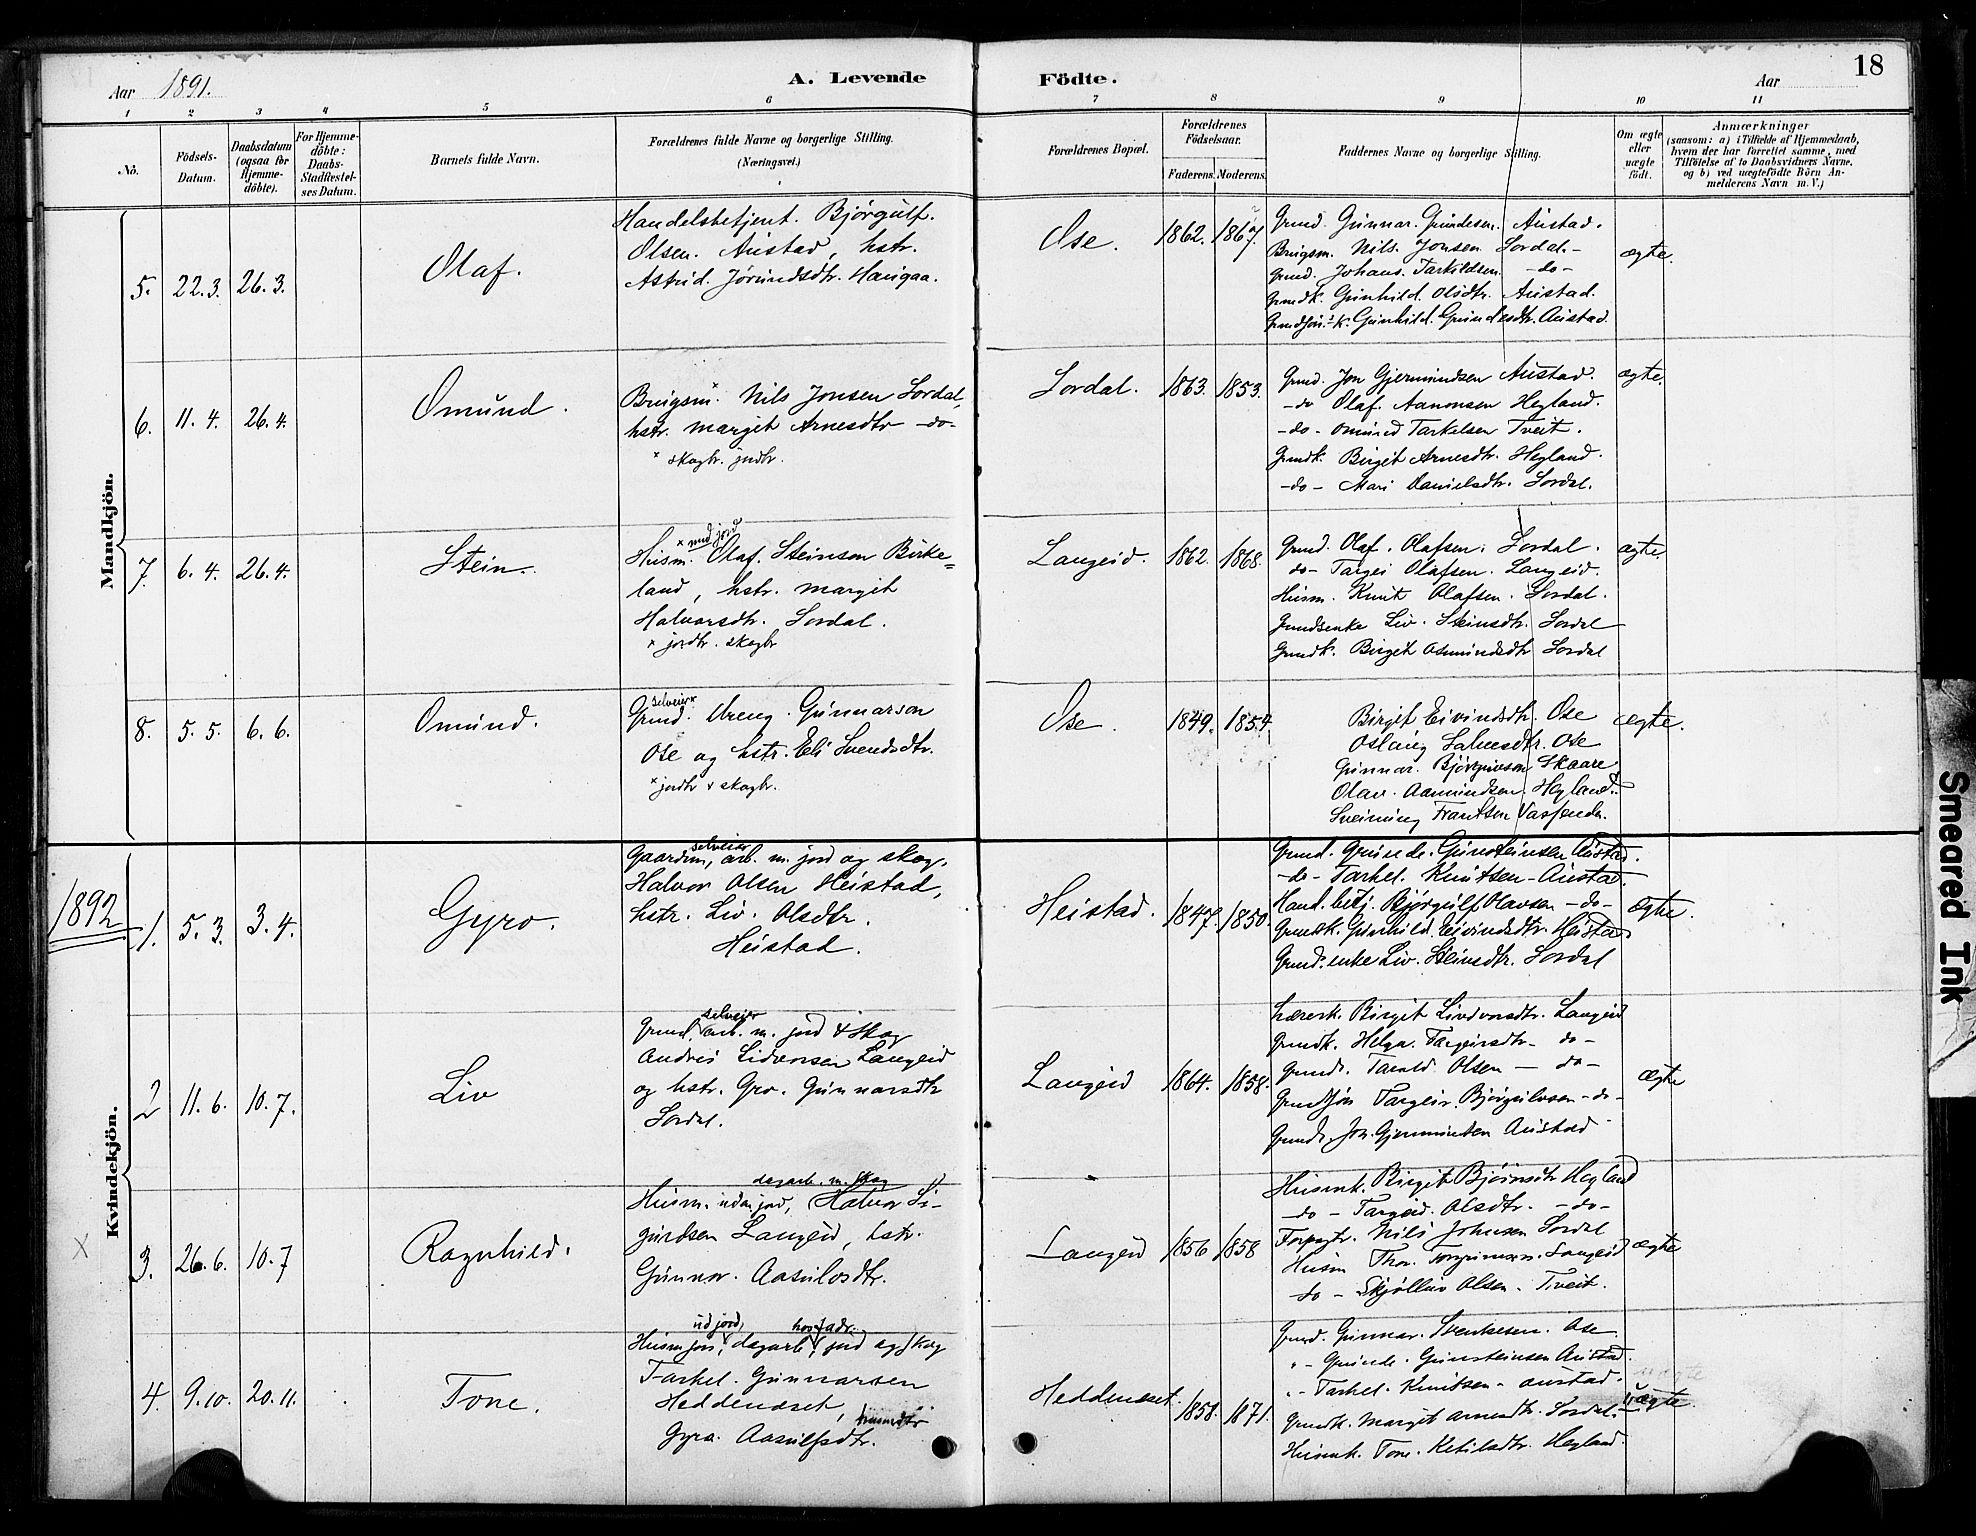 18
Aar 1891.
A. Levende Födte.
Aar
1 2 3 4 5 6 7 8 9 10 11
No.
Födsels-Datum.
Daabsdatum (ogsaa for Hjemmedöbte).
For Hjemmedöbte: Daabs-Stadfæstelses Datum.
Barnets fulde Navn.
Forældrenes fulde Navne og borgerlige Stilling. (Næringsvei.)
Forældrenes Bopæl.
Forældrenes Födselsaar.
Faderens. Moderens.
Faddernes Navne og borgerlige Stilling.
Om ægte eller uægte födt.
Anmærkninger
(saasom: a) i Tilfælde af Hjemmedaab, hvem der har forrettet samme, med Tilföielse af to Daabsvidners Navne, og b) ved uægtefödte Börn Anmelderens Navn m. V.)
Mandkjön.
5. 22.3. 26.3. Olaf.
Handelsbetjent. Bjørgulf.
Olsen. Austad, hstr.
Astrid. Jørundsdtr. Haugaa.
Ose. 1862. 1867.
Grund. Gunnar. Gundesen. Austad.
Brugsm. Nils. Jonsen Lordal-
Grund. Johans. Tarkildsen -do-
Grundk. Gunhild. Olsdtr. Austad.
Gunhild. Gundesdtr. Austad.
ægte.
6. 11.4. 26.4. Omund.
Brugsm. x Nils Jonsen Lordal,
hstr. Margit Arnesdtr -do-
x skogbr. jordbr.
Lordal. 1863. 1853.
Grund. Jon Gjermundsen Austad.
-do Olaf. Aanonsen Hegland.
-do- Omund Tarkelsen Tveit.
Grundk. Birgit Arnesdtr. Hegland.
-do- Mari Danielsdtr. Lordal.
ægte.
7. 6.4. 26.4. Stein.
x med jord
Husm. Olaf. Steinson Birke=
land, hstr. Margit
Halvorsdtr. Lordal.
x jordbr. skogbr
Langeid. 1862. 1868.
Grund. Olaf. Olafsen. Lordal.
do- Targei Olafsen. Langeid.
Husm. Knut Olafsen. Lordal.
Grundsenke Liv. Steinsdtr. Lordal
Grundk. Birgit Osmundsdtr Lordal
ægte.
8. 5.5. 6.6. Omund.
selveier x
Grund. Dreng. Gunnarson
Ose og hstr. Eli Svendsdtr.
x jordbr & skogbr.
Ose 1849. 1854
Birgit Eivindsdtr. Ose
Oslaug Salvesdtr. Ose
Gunnar. Bjørgulvson Skaare
Olav. Aamundsen Hegland.
Sveinung Frantsen Vasenden.
ægte.
1892
Kvindekjön.
1. 5.3. 3.4. Gyro.
selveier
Gaardm, arb. m. jord og skog,
Halvor Olsen Heistad,
hstr. Liv. Olsdtr.
Heistad.
Heistad. 1847. 1850.
Grund. Gunde. Gunsteinsen Austad.
-do- Tarkel. Knutsen-Austad.
Hand.betj. Bjørgulf Olavsen -do-
Grundk. Gunhild. Eivindsdtr. Heistad
Grund.enke Liv. Steinsdtr. Lordal
ægte.
2 11.6. 10.7. Liv
selveier
Grund. arb. m. jord & skog
Andres Lidvorsen Langeid
og hstr. Gro. Gunnarsdtr
Lordal.
Langeid 1864. 1858.
Lærersk. Birgit Lividvorsdtr. Langeid
Grundk. Helga. Targeirsdtr- do-
Grundr. Tarald. Olsen - do-
Grundsøn Targeir. Bjørgulvsen-do-
Grundr. Jon. Gjermundsen Austad
ægte
x 3. 26.6. 10.7 Ragnhild.
dagarb. m. skog
Husm. uden jord, Halvor Si-
gurdsen Langeid, hstr.
Gunnor. Aasulvsdtr.
Langeid 1856 1858
Husmk. Birgit Bjørnsdtr Hegland
-do- Targeid. Olsdtr. -do-
Forpagtr. Nils Johnsen Lordal
Husm Thor. Torgrimsen. Langeid
do - Skjølluv Olsen. Tveit.
ægte
4. 9.10. 20.11. Tone.
ud jord, hos fadr.
Husm.søn, dagarb. jord og skog
Tarkel. Gunnarsen
Heddenæset,
Gyro. Aasulfsdtr.
Heddenæset. 1858. 1871.
Grund. Gunnar. Sverkesen. Ose.
"- Gunde. Gunsteinsen Austad.
"- Tarkel. Knutsen- Austad.
Grundk. Margit Arnesdtr. Lordal.
Husmk. Tone. Ketilsdtr. Hegland.
uægte
uægte.
Smeared Ink